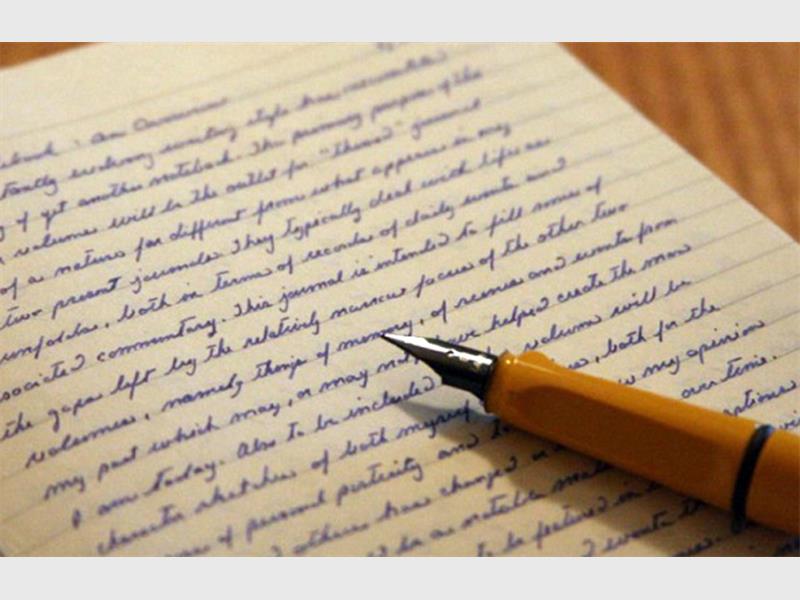 An Overview
constantly evolving writing style has necessitated
of yet another notebook. The primary purpose of the
volume will be the outlet for "themed" journal
of a nature far different from what appears in my
two present journals. They typically deal with life as
unfolds, both in terms of records of daily events and
associated commentary. This journal is intended to fill some of
the gaps left by the relatively narrow focus of the other two
volumes, namely things of memory, of scenes and events from
my past which may, or may not have helped create the man
I am today. Also to be included volume will be
character sketches of both myself , both for the
of personal posterity and my opinion
others has changed over time.
be a notable
to be featured in